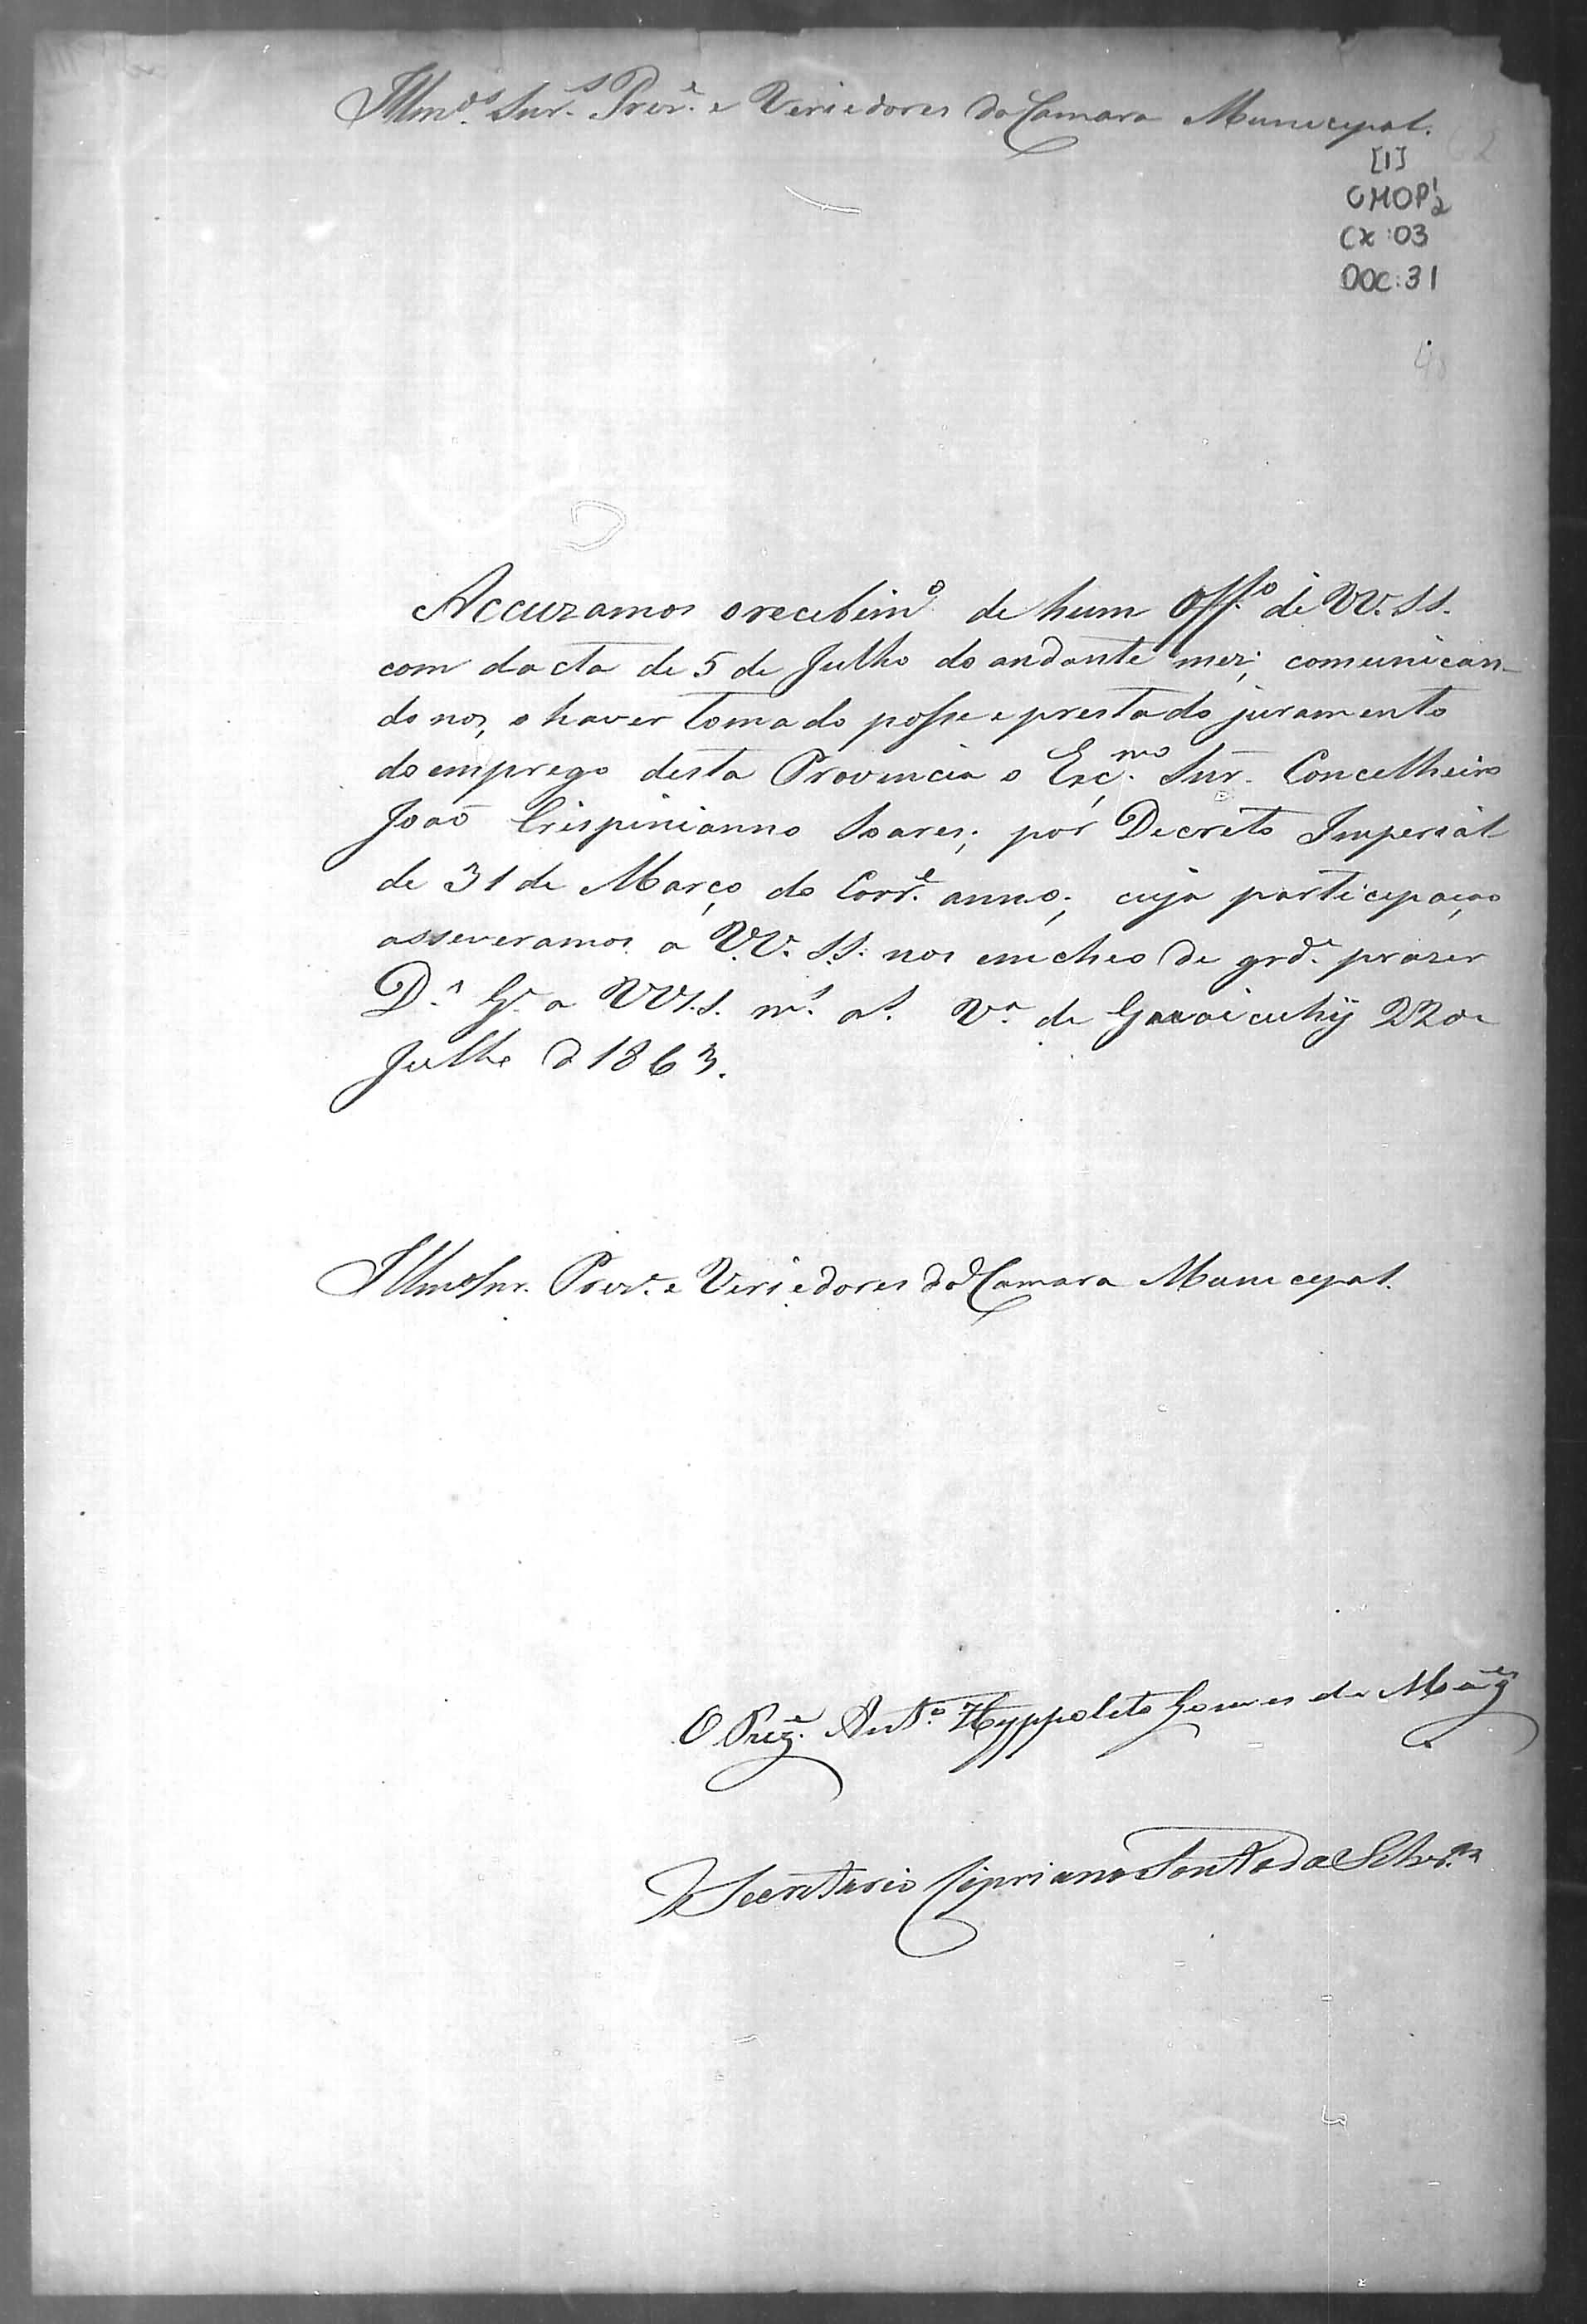 Illm.os Snr.s Prez.e e Veriedores da Camara Municepal.
[1]
CMOP 1/2
CX:03
DOC:31
Accuzamos o recebim.o de hum Off.o de VV.SS.
com dacta de 5 de Julho do andante mez; comunican-
do nos, o haver tomado posse e prestado juramento
do emprego desta Provincia o Exc.mo Snr. Concelheiro
João Crispinianno Soares; por Decreto Imperial
de 31 de Março do Corr.e anno; cuja participação
asseveramos a V.V.SS. nos encheo de grd.e prazer
D.s G.e a VV.S.S. m.s a.s V.a de 22 de
Julho d 1863.
Illmos Snr. Prez.e e Veriedores da Camara Municepal.
O Prez.e Ant.o Hyppolito Gomes de
O Secretario Cipriano da